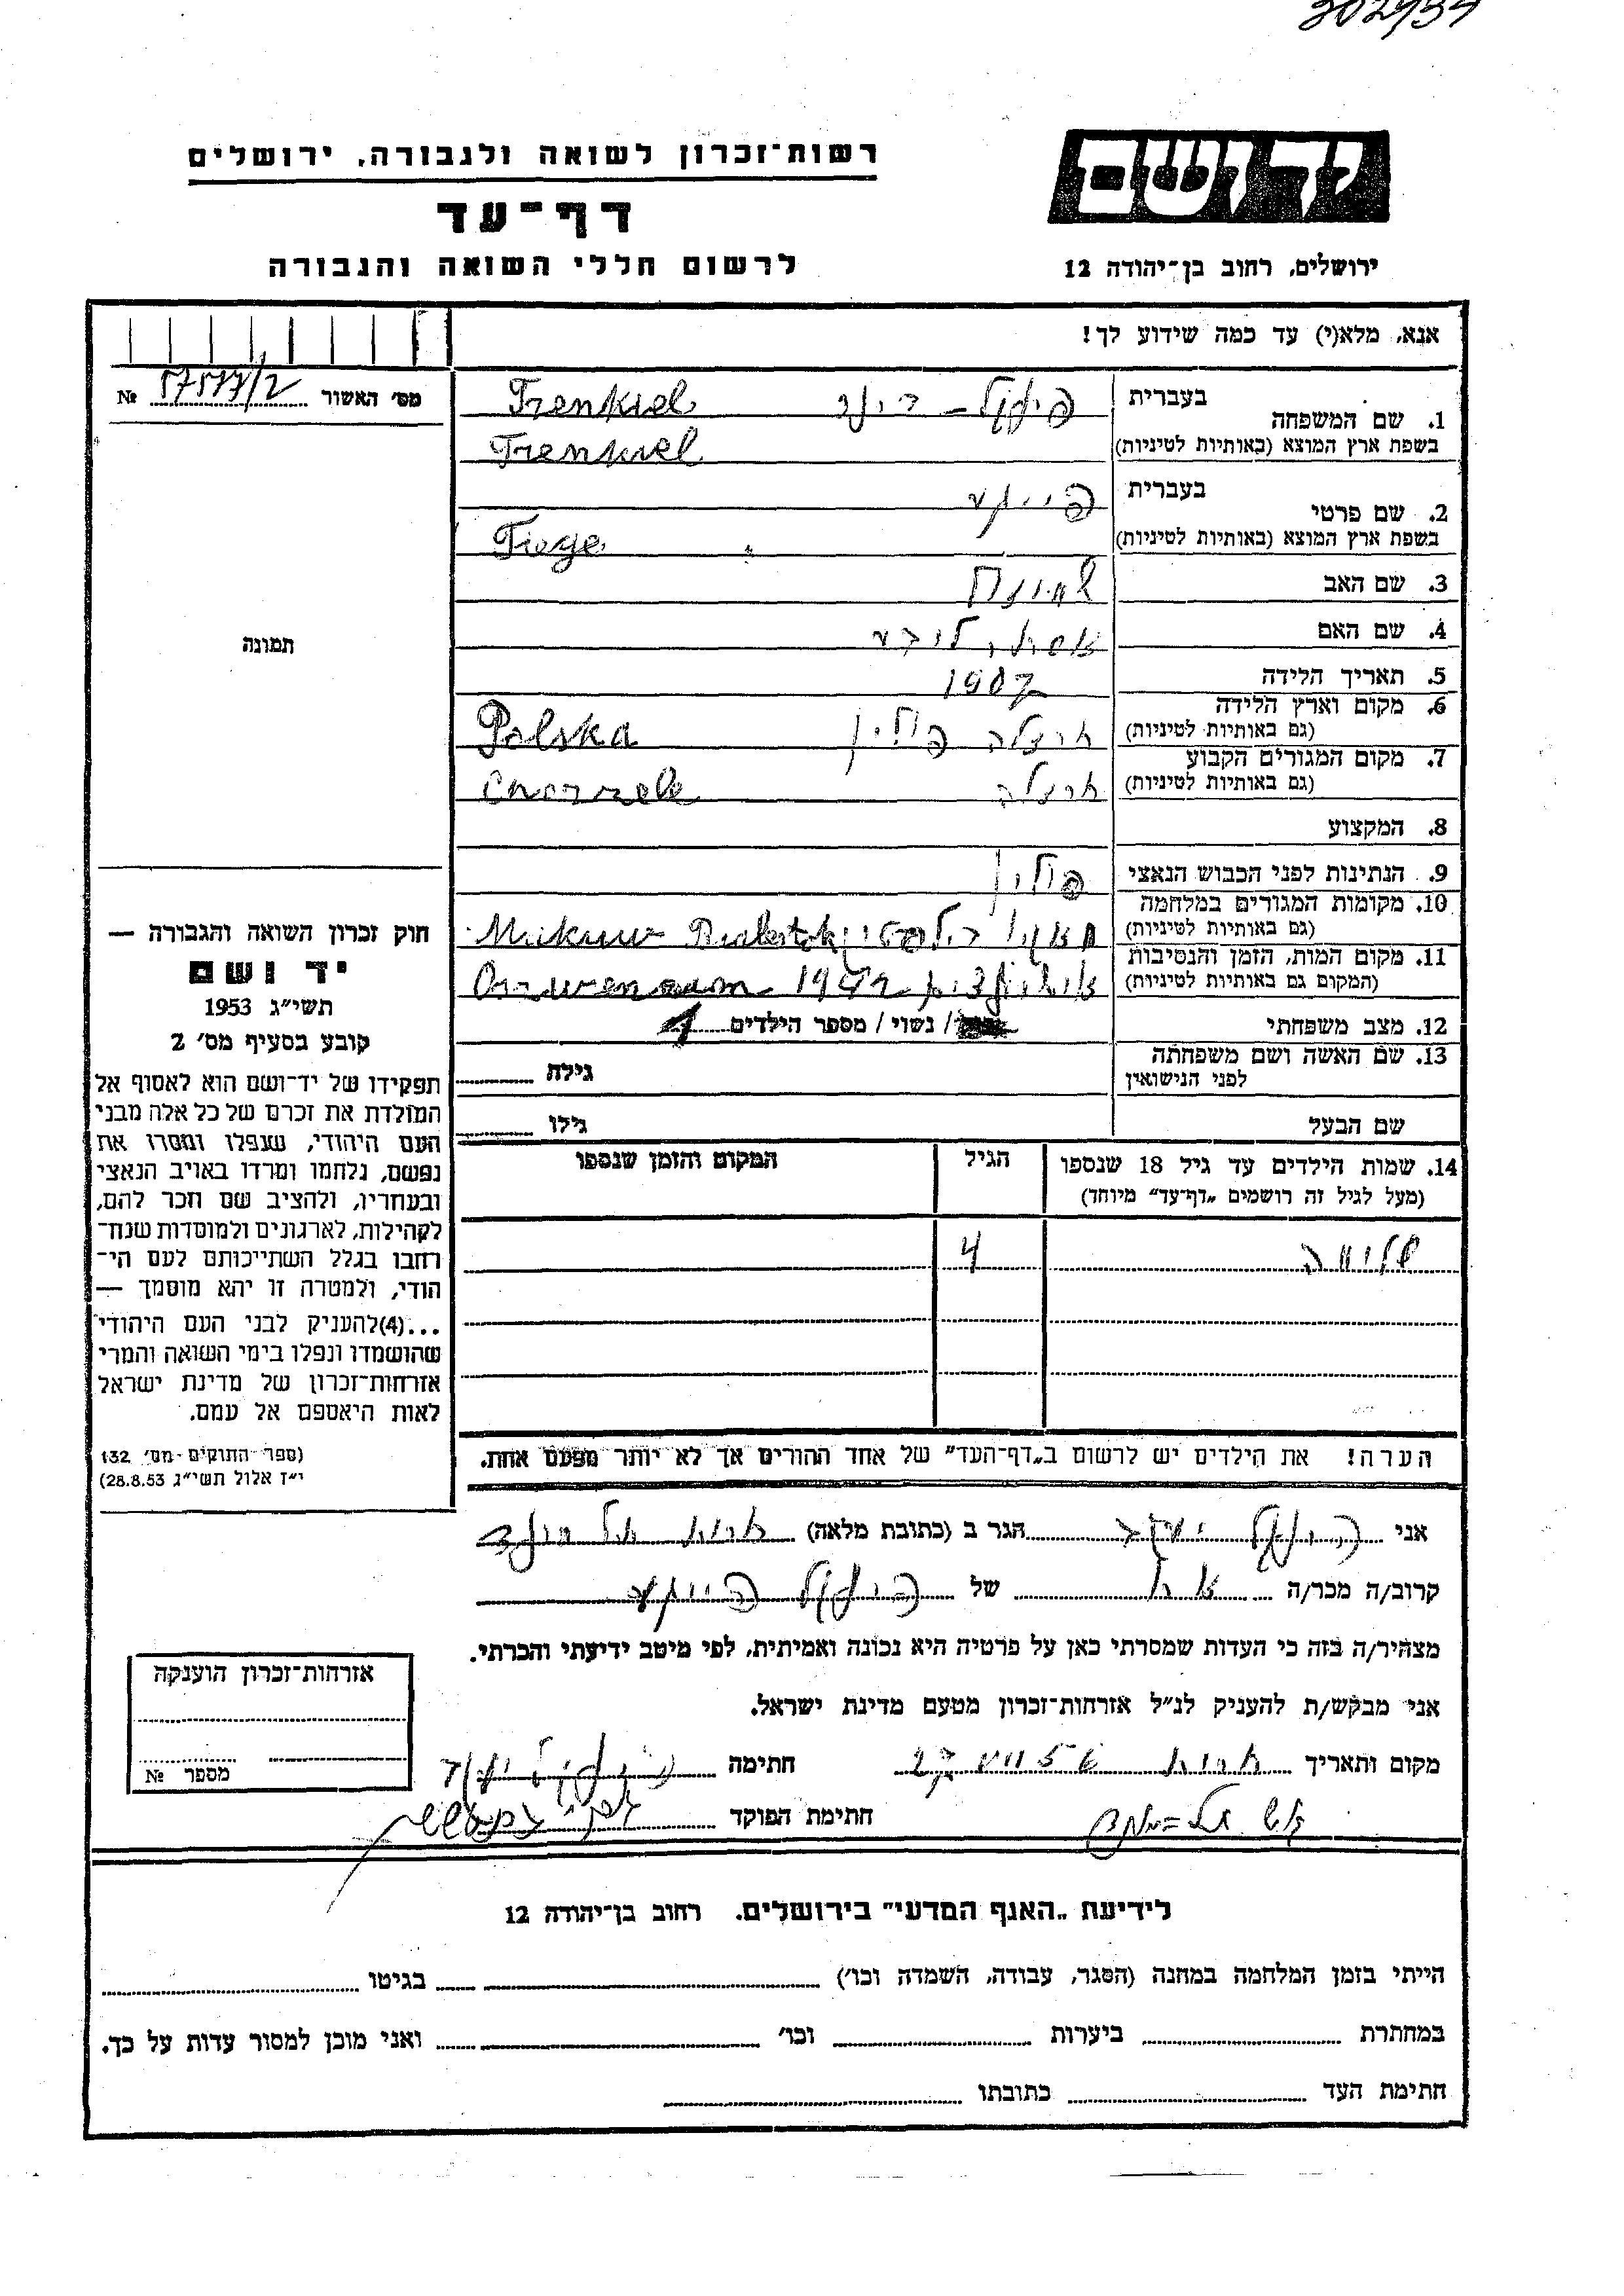 302934
רשות־זכרון לשואה ולגבורה, ירושלים
יד ושם
דף־עד
לרשום חללי השואה והגבורה
ירושלים, רחוב בן־יהודה 12
אנא, מלא(י) עד כמה שידוע לך!
מס׳ האשור 57577/2 №
1. שם המשפחה בעברית Frenkiel
בשפת ארץ המוצא (באותיות לטיניות) Frenkiel
2. שם פרטי בעברית פייגע
בשפת ארץ המוצא (באותיות לטיניות) Fiege
3. שם האב
4. שם האם
5. תאריך הלידה 1907
6. מקום וארץ הלידה (גם באותיות לטיניות) פולין Polska
7. מקום המגורים הקבוע (גם באותיות לטיניות) Chorzele
8. המקצוע
9. הנתינות לפני הכבוש הנאצי פולין
10. מקומות המגורים במלחמה (גם באותיות לטיניות)
11. מקום המות, הזמן והנסיבות (המקום גם באותיות לטיניות)
12. מצב משפחתי / נשוי / מספר הילדים 1
13. שם האשה ושם משפחתה לפני הנישואין גילה
שם הבעל גילו
14. שמות הילדים עד גיל 18 שנספו (מעל לגיל זה רושמים „דף־עד” מיוחד) הגיל המקום והזמן שנספו
שלומה 4
הערה! את הילדים יש לרשום ב„דף־העד” של אחד ההורים אך לא יותר מפעם אחת.
תמונה
חוק זכרון השואה והגבורה —
יד ושם
תשי״ג 1953
קובע בסעיף מס׳ 2
תפקידו של יד־ושם הוא לאסוף אל
המולדת את זכרם של כל אלה מבני
העם היהודי, שנפלו ומסרו את
נפשם, נלחמו ומרדו באויב הנאצי
ובעוזריו, ולהציב שם וזכר להם,
לקהילות, לארגונים ולמוסדות שנח־
רבו בגלל השתייכותם לעם הי־
הודי, ולמטרה זו יהא מוסמך —
...(4)להעניק לבני העם היהודי
שהושמדו ונפלו בימי השואה והמרי
אזרחות־זכרון של מדינת ישראל
לאות היאספם אל עמם.
(ספר החוקים מס׳ 132
י״ז אלול תשי״ג 28.8.53)
אני הגר ב (כתובת מלאה)
קרוב/ה מכר/ה אח של
מצהיר/ה בזה כי העדות שמסרתי כאן על פרטיה היא נכונה ואמיתית, לפי מיטב ידיעתי והכרתי.
אני מבקש/ת להעניק לנ״ל אזרחות־זכרון מטעם מדינת ישראל.
מקום ותאריך חתימה
חתימת הפוקד
אזרחות־זכרון הוענקה
מספר №
לידיעת „האגף המדעי” בירושלים. רחוב בן־יהודה 12
הייתי בזמן המלחמה במחנה (הסגר, עבודה, השמדה וכו׳) בגיטו
במחתרת ביערות וכו׳ ואני מוכן למסור עדות על כך.
חתימת העד כתובתו